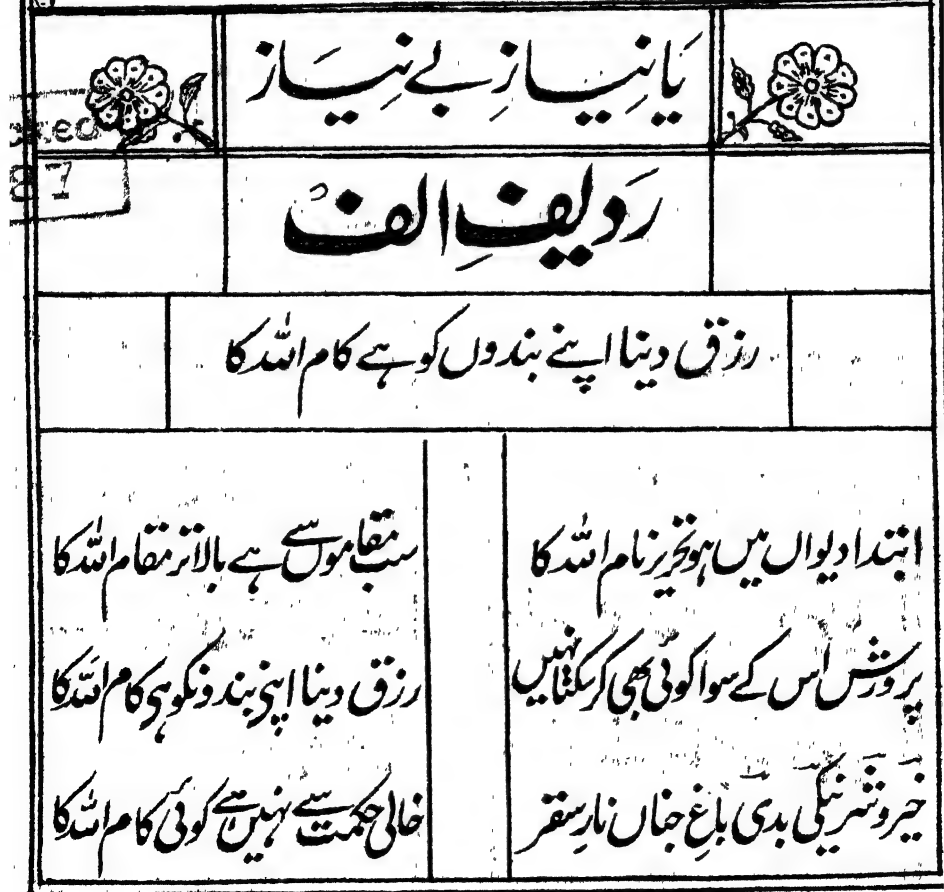 یَا نِیَازِ بے نِیَاز
رَدیفِ الف
رزق دینا اپنے بندوں کو ہے کام اللہ کا
ابتدا دیواں میں ہو تحریر نام اللہ کا
سب مقاموں سے ہے بالاتر مقام اللہ کا
پرورش اُس کے سوا کوئی بھی کر سکتا نہیں
رزق دینا اپنی بندونکو ہی کام اللہ کا
خیر و شر نیکی بدی باغِ جناں نارِ سقر
خالی حکمت سے نہیں ہے کوئی کام اللہ کا